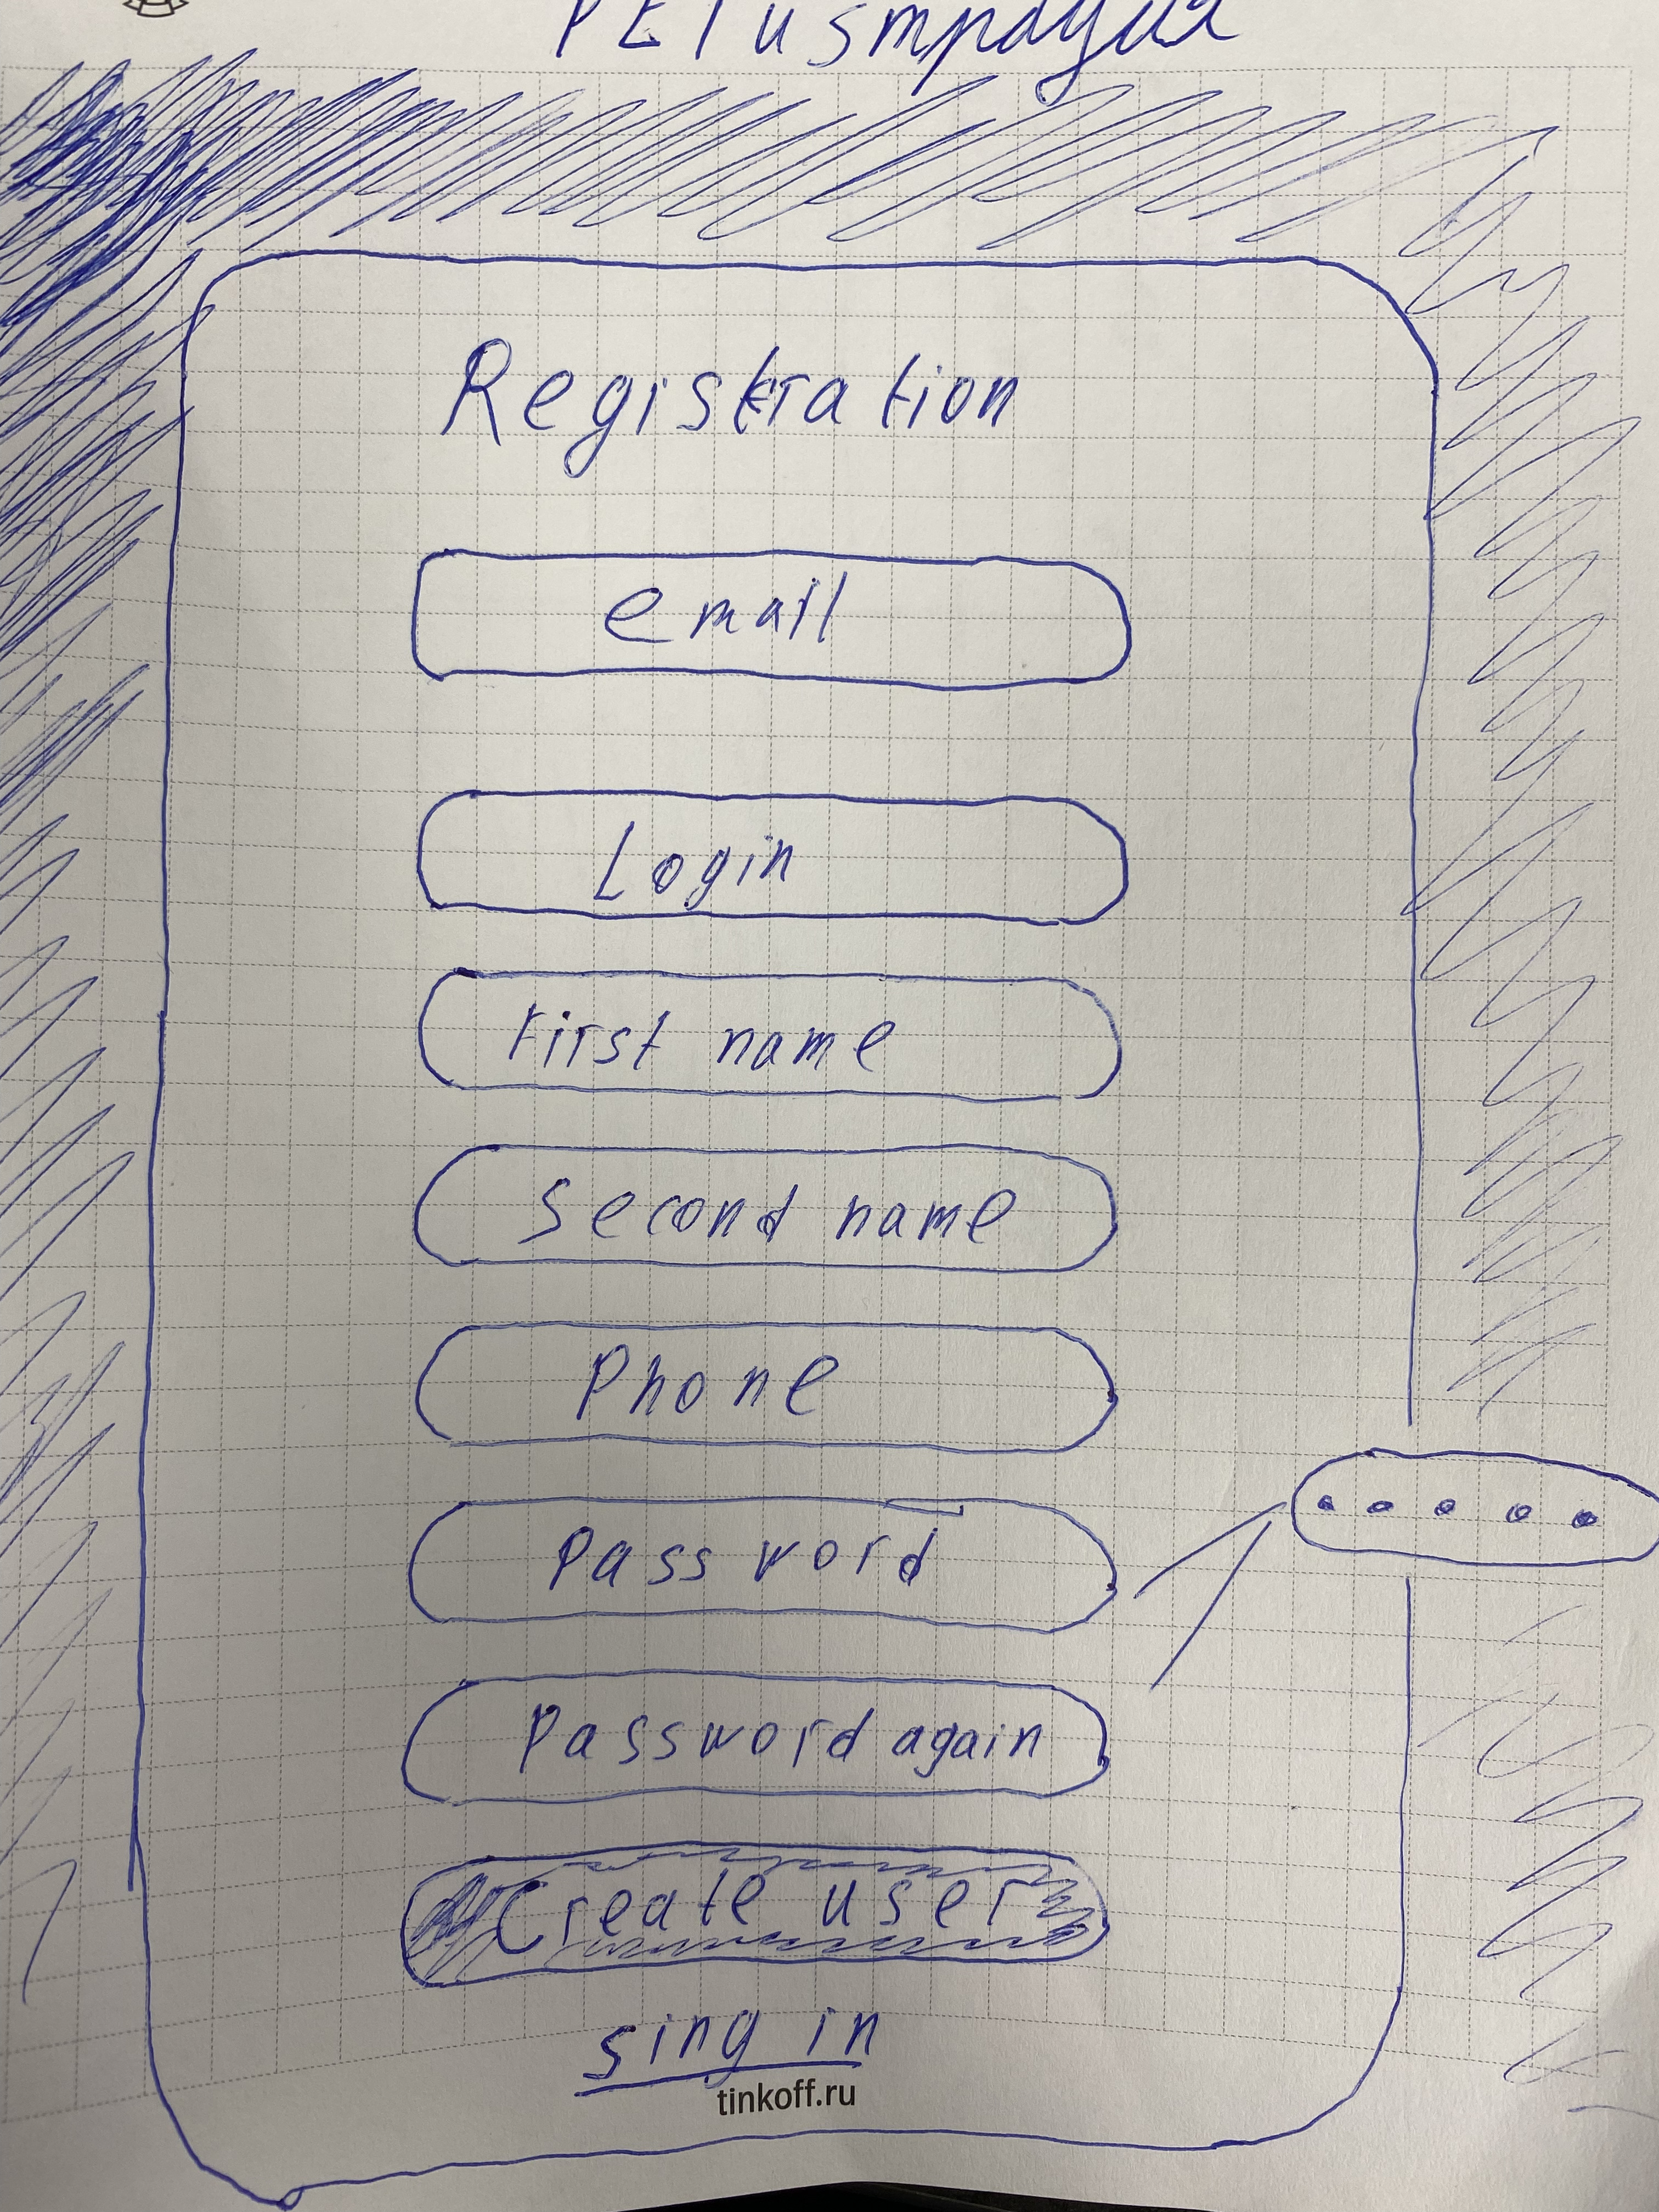 РЕГистрация
Registration
email
Login
First name
Second name
Phone
Password
Password again
Create user
sing in
tinkoff.ru